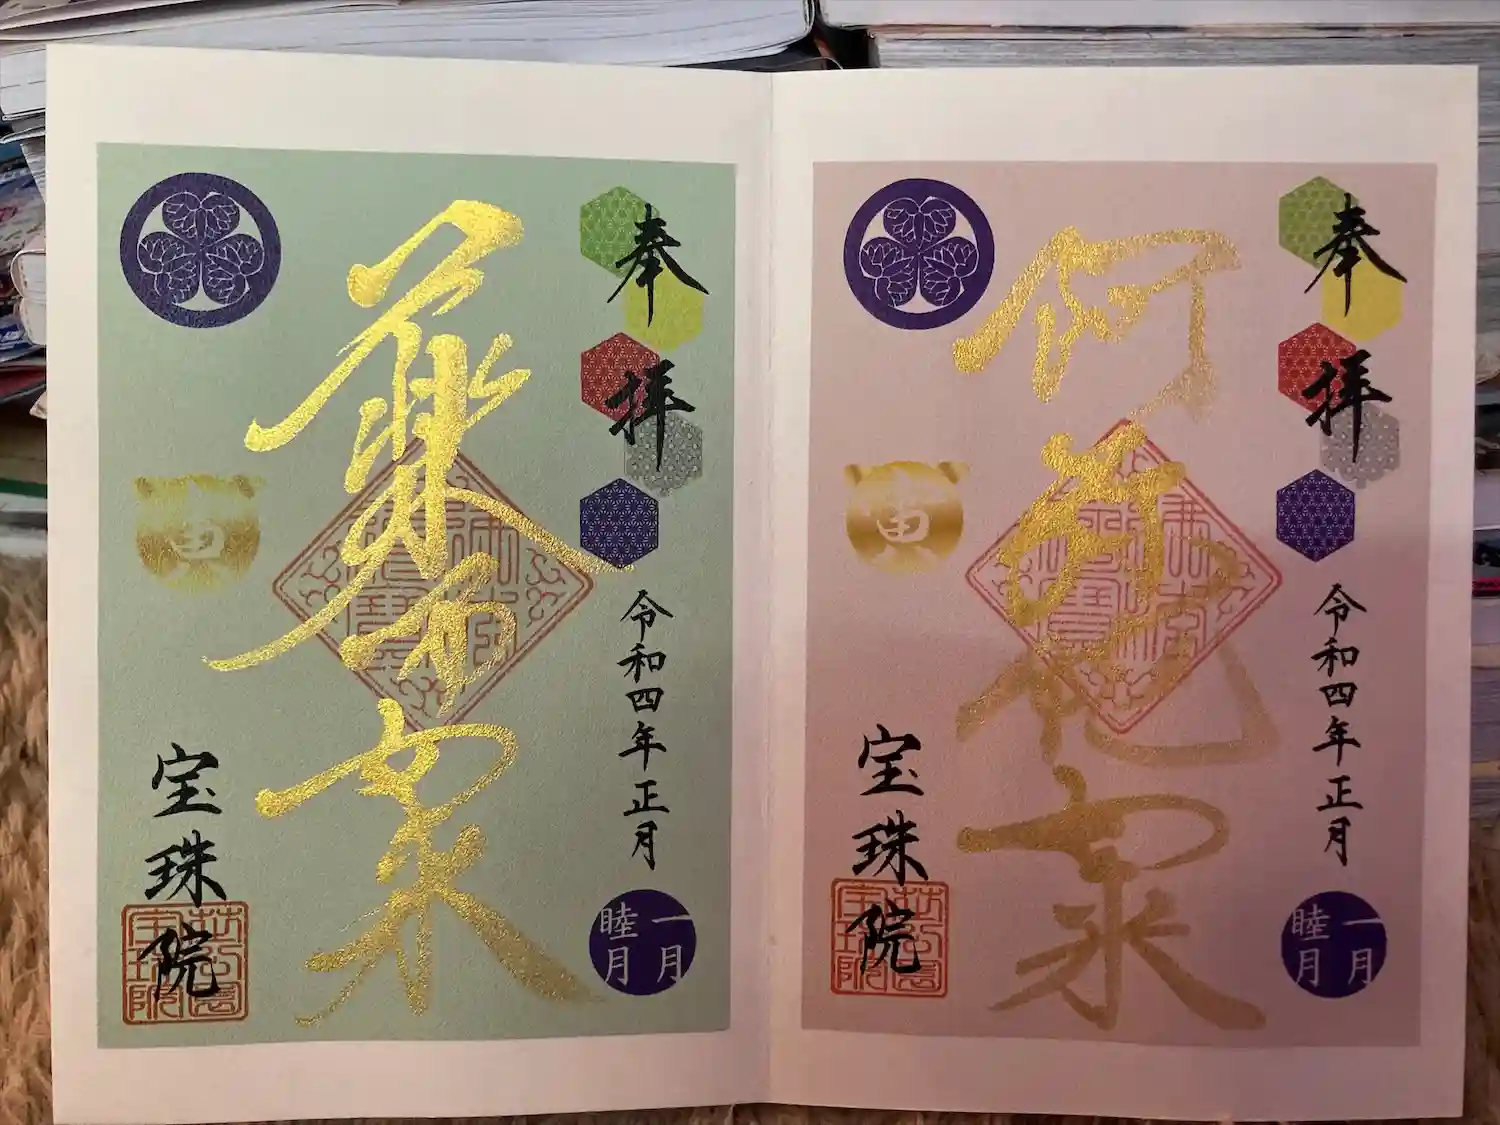 奉拝
令和四年正月
一月
睦月
阿弥陀如来
寅
宝珠院
奉拝
令和四年正月
一月
睦月
薬師如来
寅
宝珠院